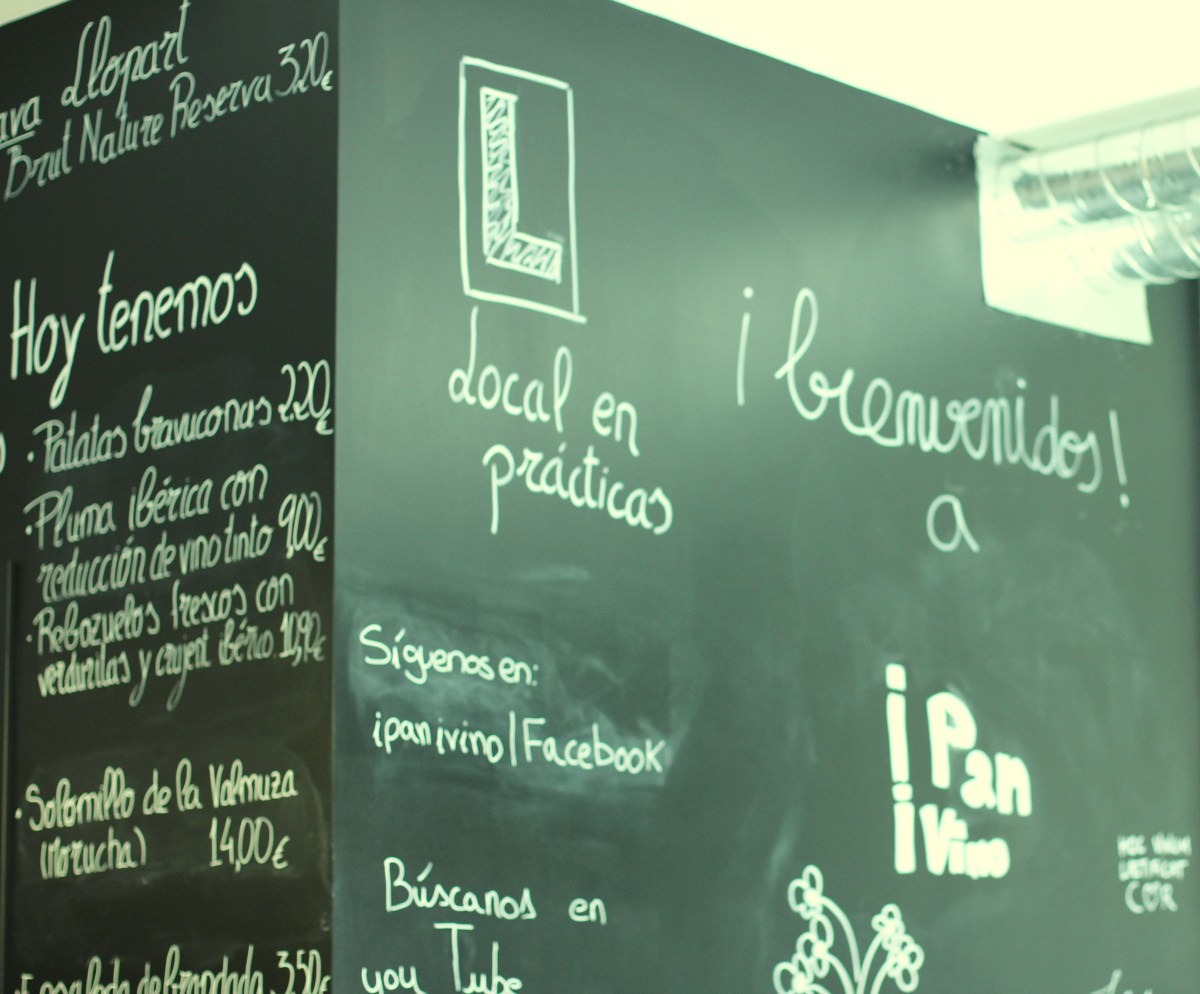 Llopart
Brut Nature Reserva 3,20€
Hoy tenemos
· Patatas bravuconas 2,20€
· Pluma ibérica con
reducción de vino tinto 9,00€
· Rebozuelos frescos con
verduritas y crujent ibério 10,90€
· Solomillo de la Valmuza
(Morucha) 14,00€
de brandada 3,50€
L
Local en
prácticas
Síguenos en:
ipanivino/Facebook
Búscanos en
you Tube
¡bienvenidos!
a
¡Pan
¡Vino
COR